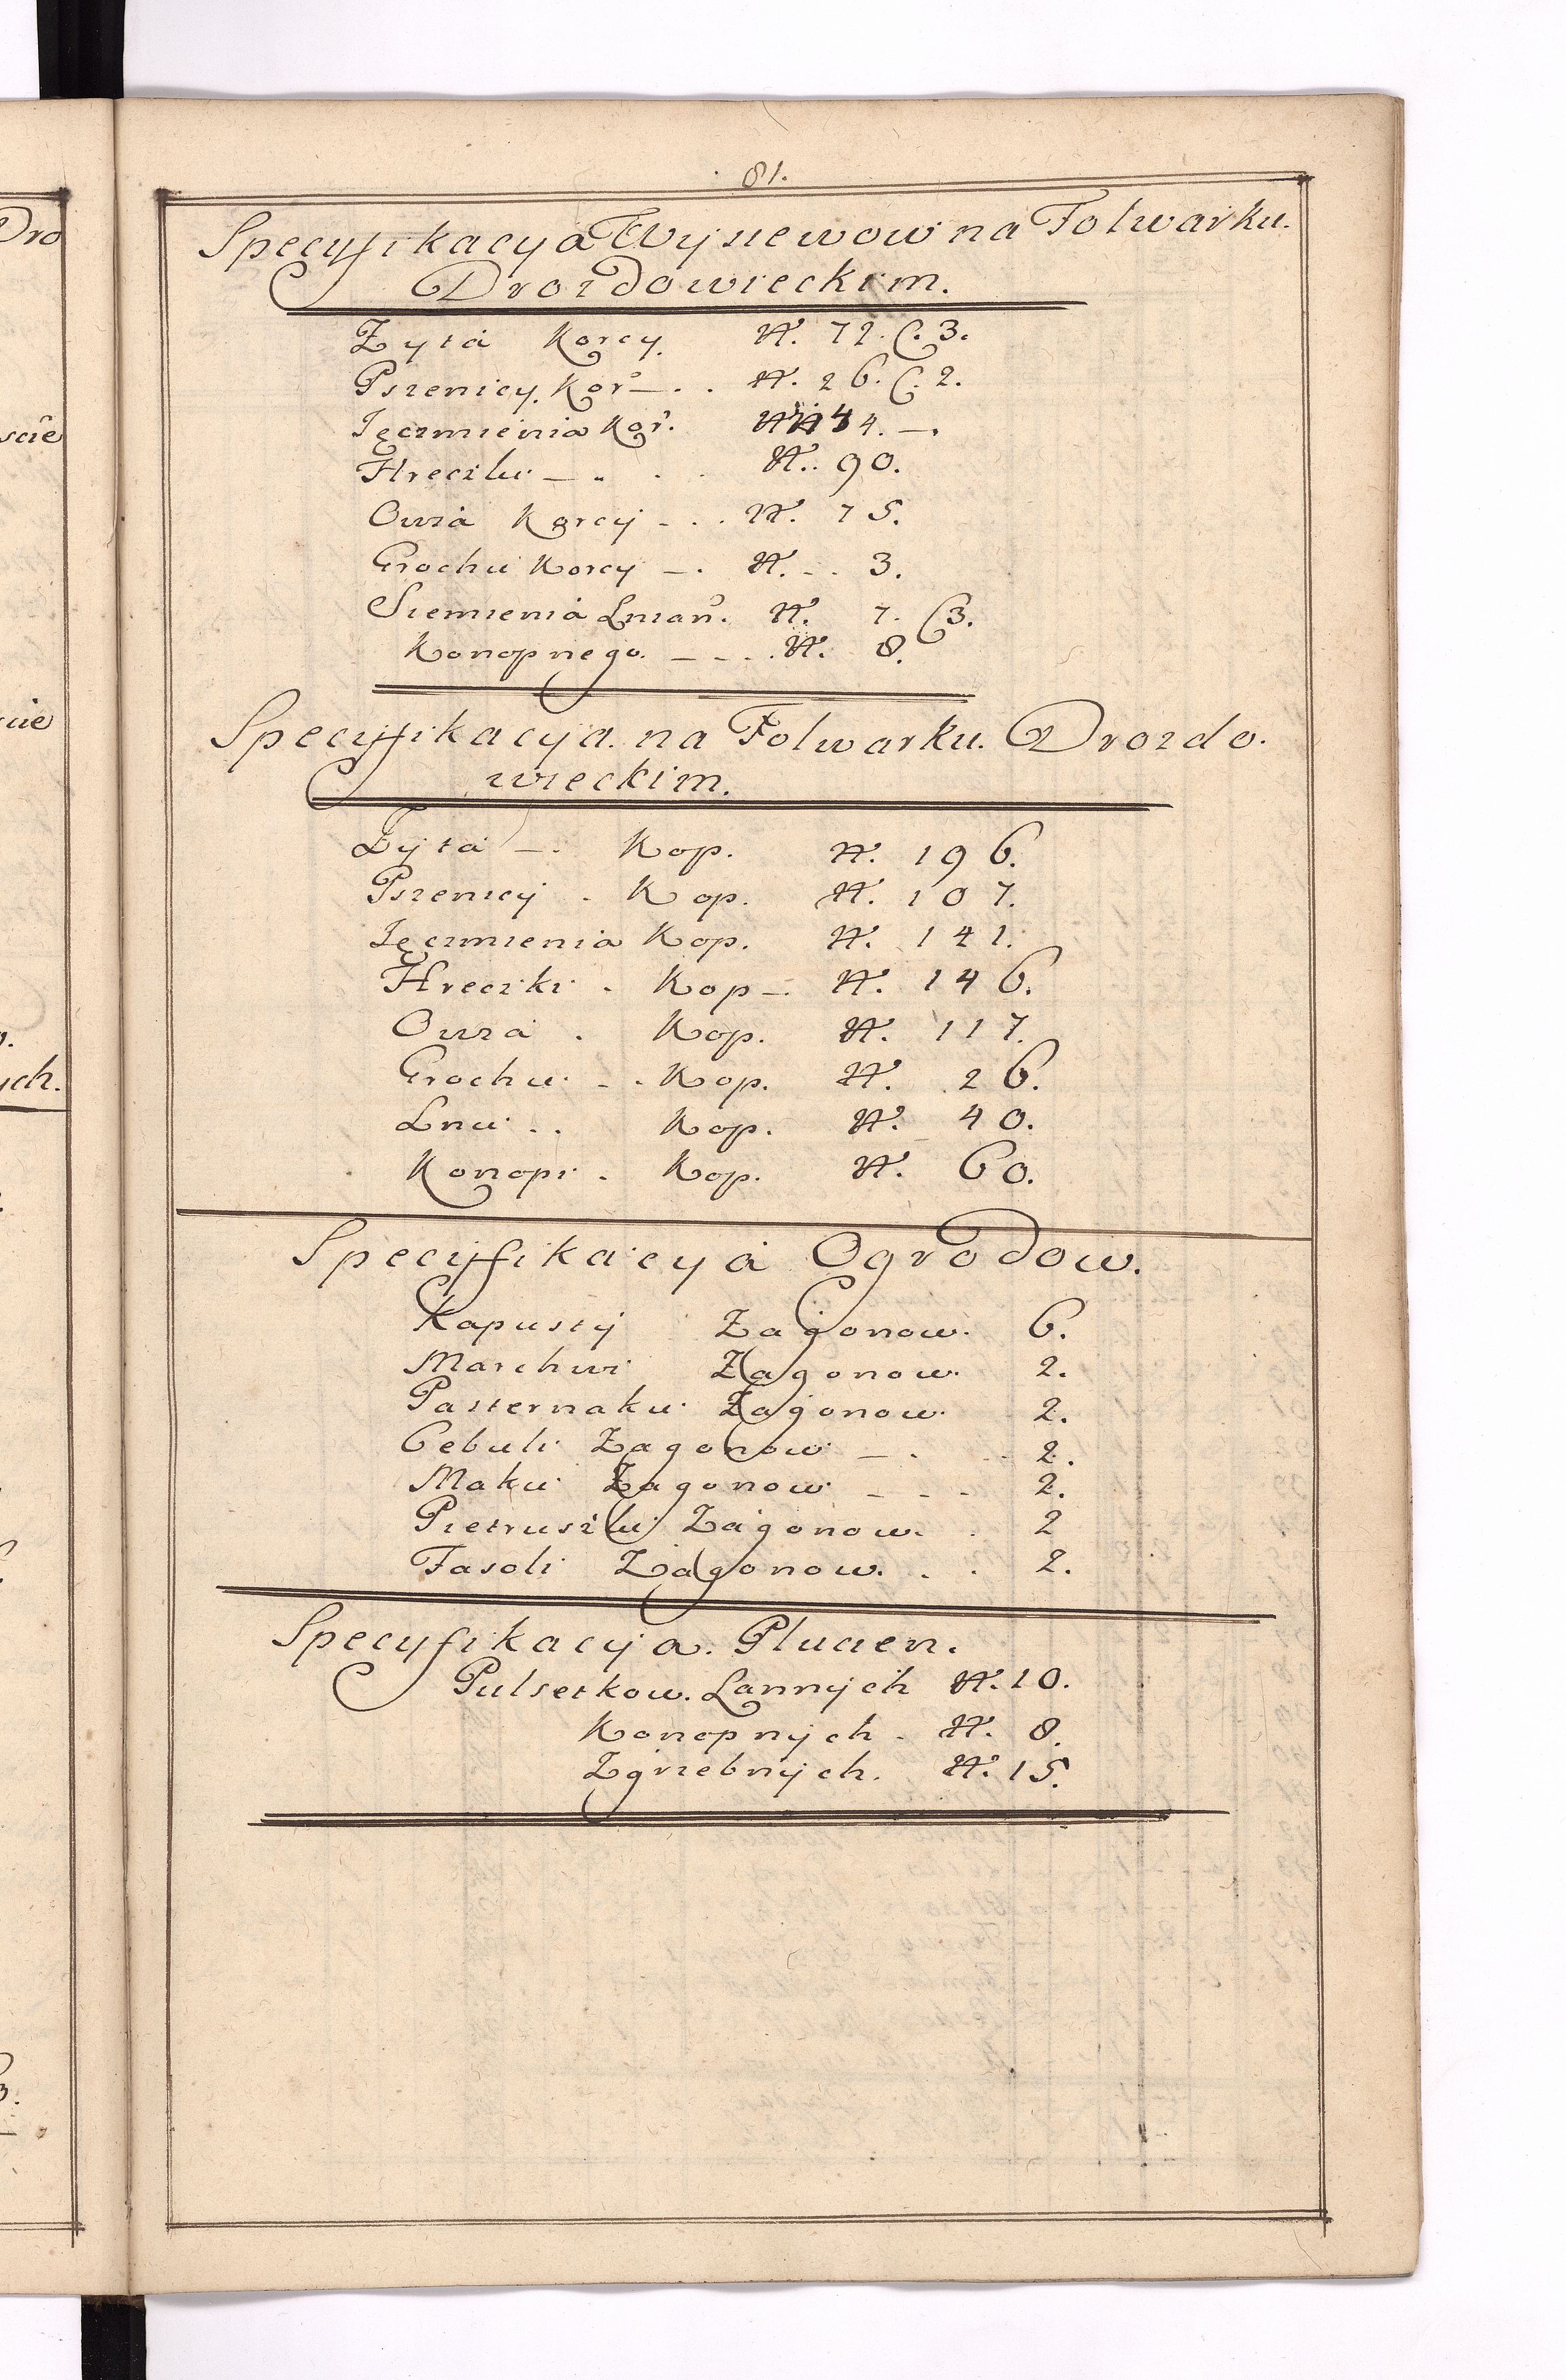 81.
Specyfikacya Wysiewow na Folwarku.
Drozdowieckim.
Zyta Korcy. N. 72. C. 3.
Pszenicy. Kor. — . . N. 26. C. 2.
Jęczmienia Kor. N. 44. —.
Hreczki — . . . N. 90.
Owsa Korcy - . . N. 75.
Grochu Korcy — . N. . . 3.
Siemienia Lnian. N. 7. C3.
Konopnego. — - - . N. 8.
Specyfikacya. na Folwarku. Drozdo.
wieckim.
Zyta — . Kop. N. 196.
Pszenicy . Kop. N. 107.
Jęczmienia Kop. N. 141.
Hreczki . Kop —. N. 146.
Owsa . Kop. N. 117.
Grochu - . Kop. N. 26.
Lnu . . Kop. N. 40.
Konopi . Kop. N. 60.
Specyfikacya Ogrodow.
Kapusty Zagonow. 6.
Marchwi Zagonow. 2.
Pasternaku Zagonow. 2.
Cebuli Zagonow — . . . 2.
Maku Zagonow - - - 2.
Pietruszki Zagonow. . 2
Fasoli Zagonow. . . 2.
Specyfikacya. Plucien.
Pulsetkow. Lannych N. 10.
Konopnych . N. 8.
Zgrzebnych. N. 15.
Dro
ych.